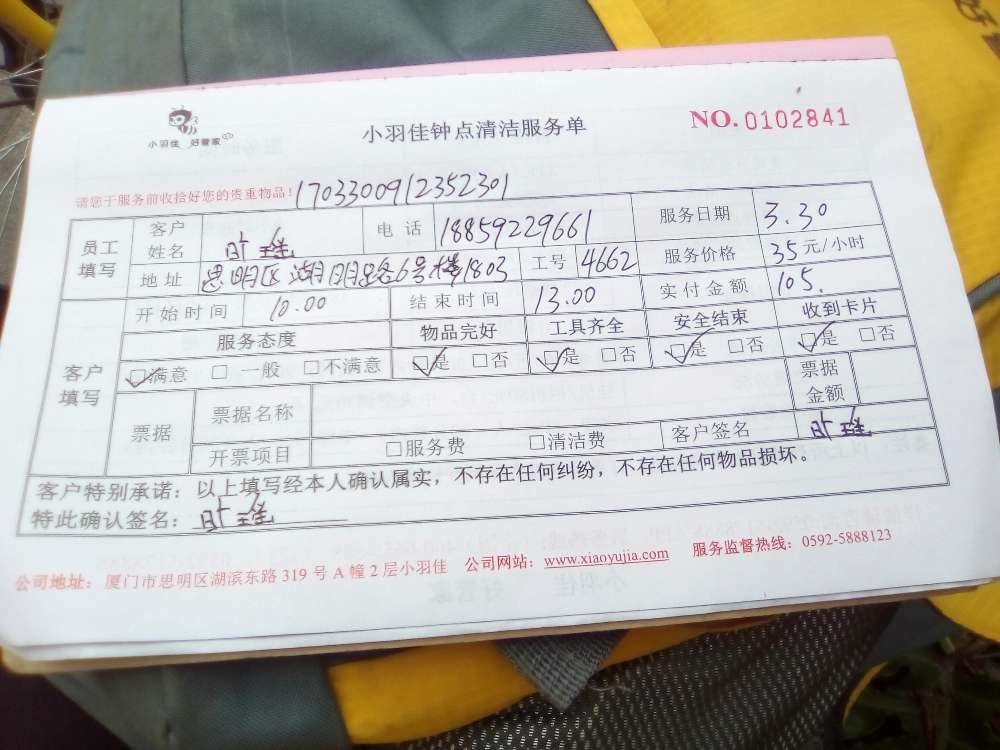 小羽佳 好管家
小羽佳钟点清洁服务单
NO.0102841
请您于服务前收拾好您的贵重物品！170330091235230 1
员工填写 客户姓名 旷 电话 18859229661 服务日期 3.30
地址 思明区湖明路6号楼1803 工号 4662 服务价格 35元/小时
客户填写 开始时间 10.00 结束时间 13.00 实付金额 105.
服务态度 物品完好 工具齐全 安全结束 收到卡片
☑满意 □一般 □不满意 ☑是 □否 ☑是 □否 ☑是 □否 ☑是 □否
票据 票据名称 票据金额
开票项目 □服务费 □清洁费 客户签名 旷
客户特别承诺：以上填写经本人确认属实，不存在任何纠纷，不存在任何物品损坏。
特此确认签名：旷
公司地址：厦门市思明区湖滨东路319号A幢2层小羽佳 公司网站：www.xiaoyujia.com 服务监督热线：0592-5888123